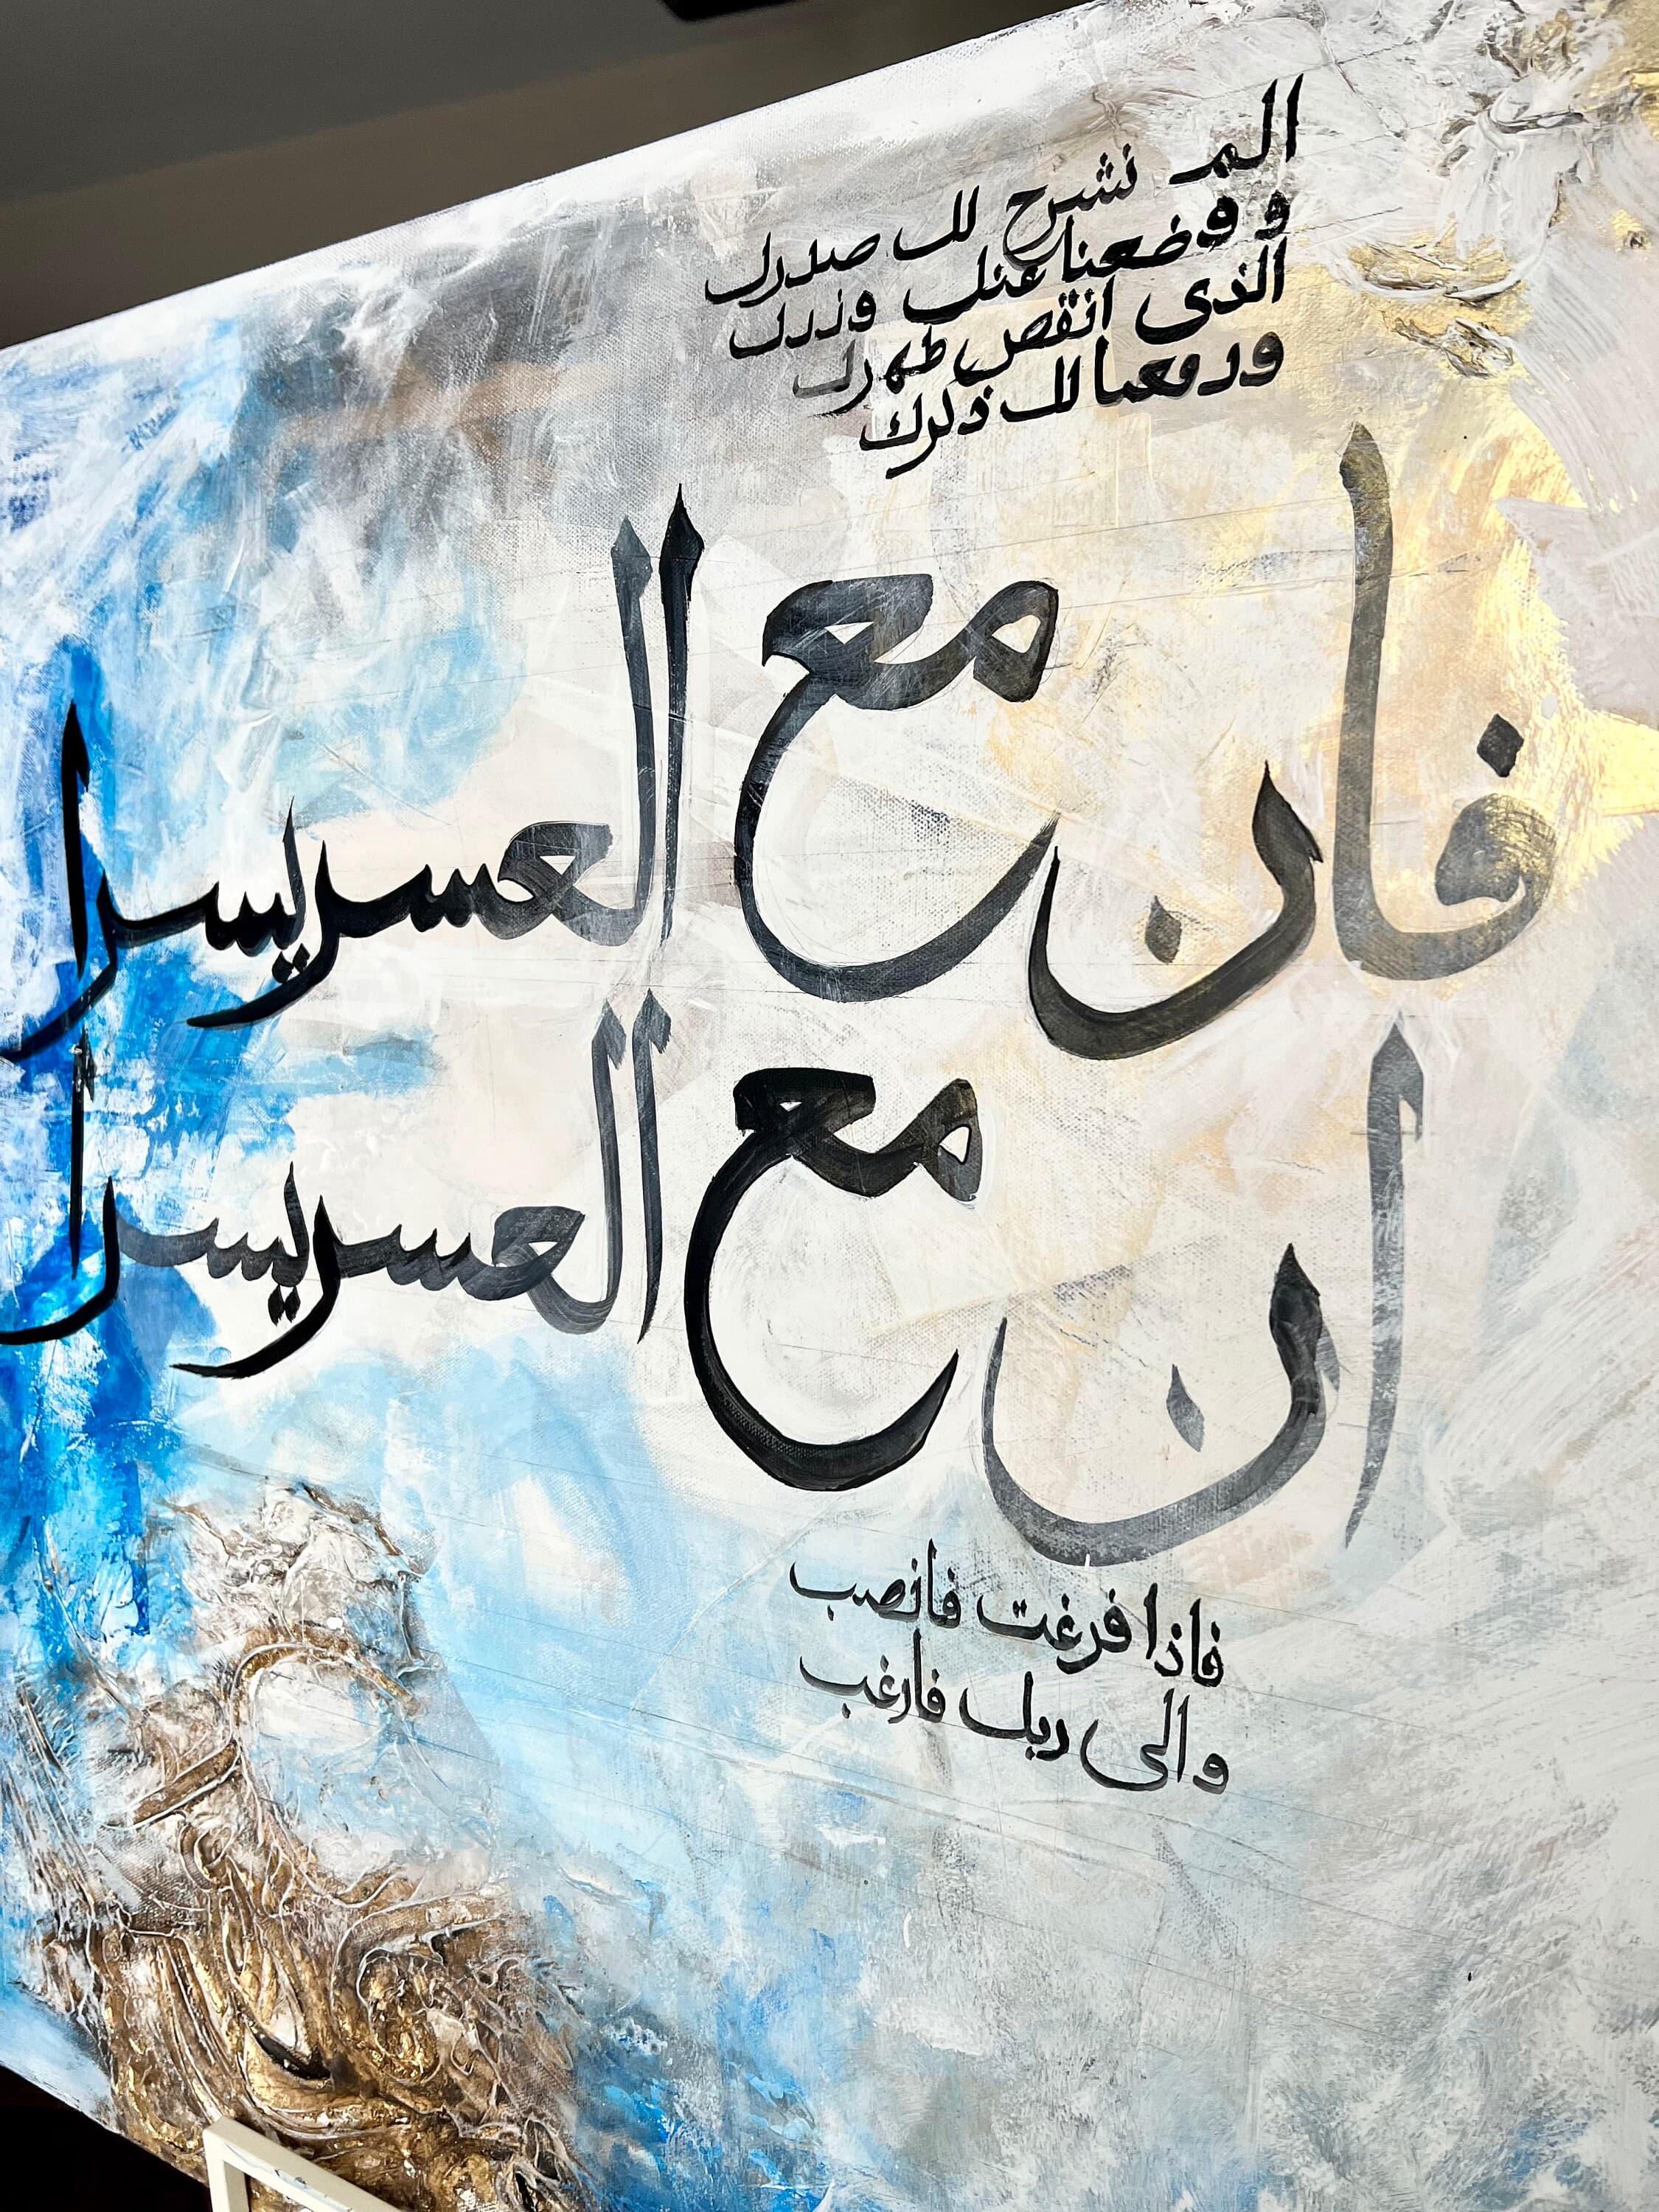 الم نشرح لك صدرك
و وضعنا عنك وزرك
الذى انقص طهرك
ورفعنا لك ذكرك
فان مع العسر يسرا
ان مع العسر يسرا
فاذا فرغت فانصب
والى ربك فارغب